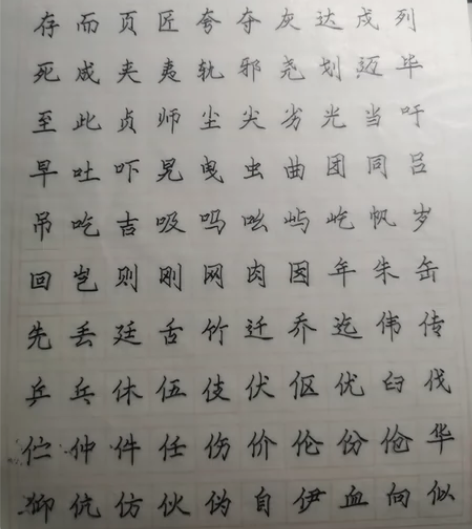 存而页匠夸夺灰达戍列
死成夹夷轨邪尧划迈毕
至此贞师尘尖劣光当吁
早吐吓晃曳虫曲团同吕
吊吃吉吸吗吆屿屹帆岁
回岂则刚网肉因年朱缶
先丢廷舌竹迁乔迄伟传
乒乓休伍伎伏伛优臼伐
伫仲件任伤价伦份伧华
仰伉仿伙伪自伊血向似